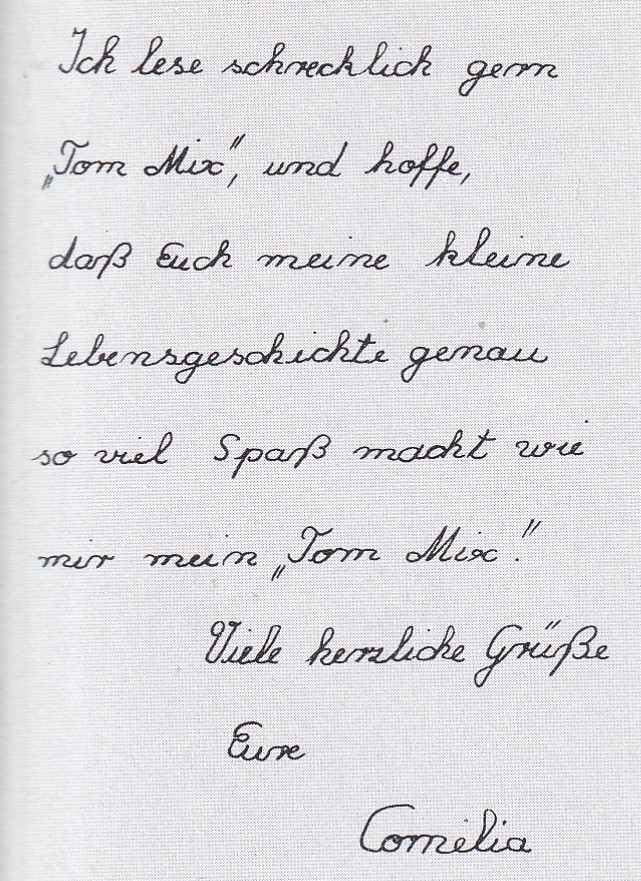 Ich lese schrecklich gern
„Tom Mix“, und hoffe,
daß Euch meine kleine
Lebensgeschichte genau
so viel Spaß macht wie
mir mein „Tom Mix“.
Viele herzliche Grüße
Eure
Cornelia